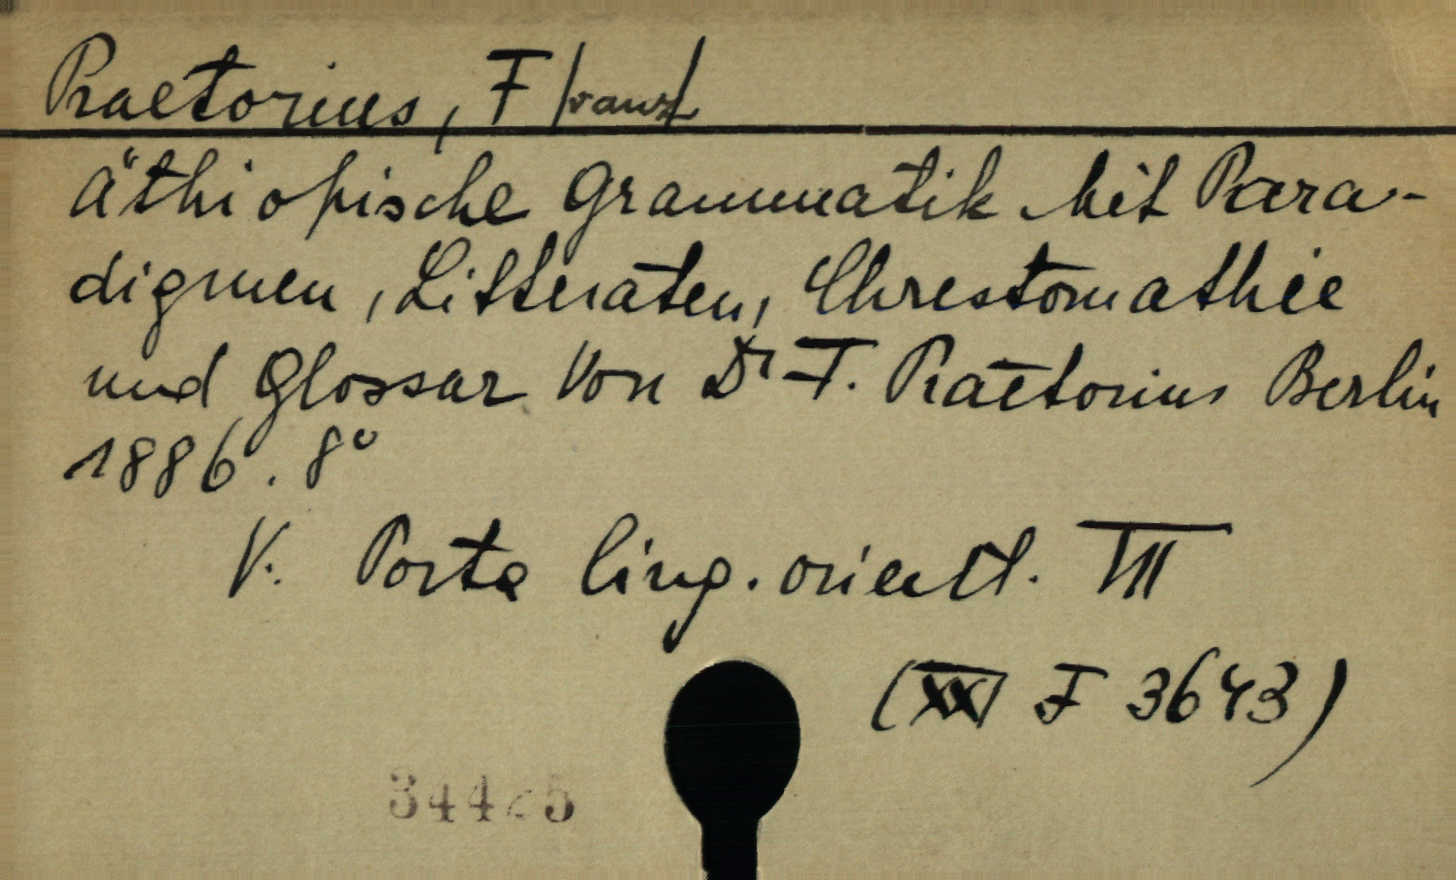 Praetorius, F/ranz/
Äthiopische Grammatik Mit Para-
digmen, Litteraten, Chrestomathie
und Glossar Von Dr F. Praetorius Berlin
1886. 8°
V. Porta ling. orientl. VII
(XX F 3643)